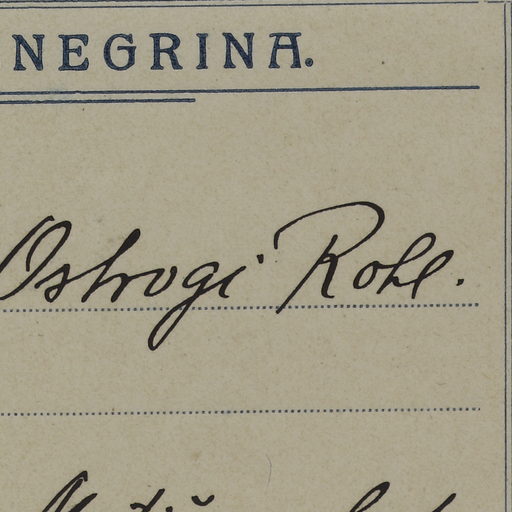 NEGRINA.
Ostrogi Rohl.